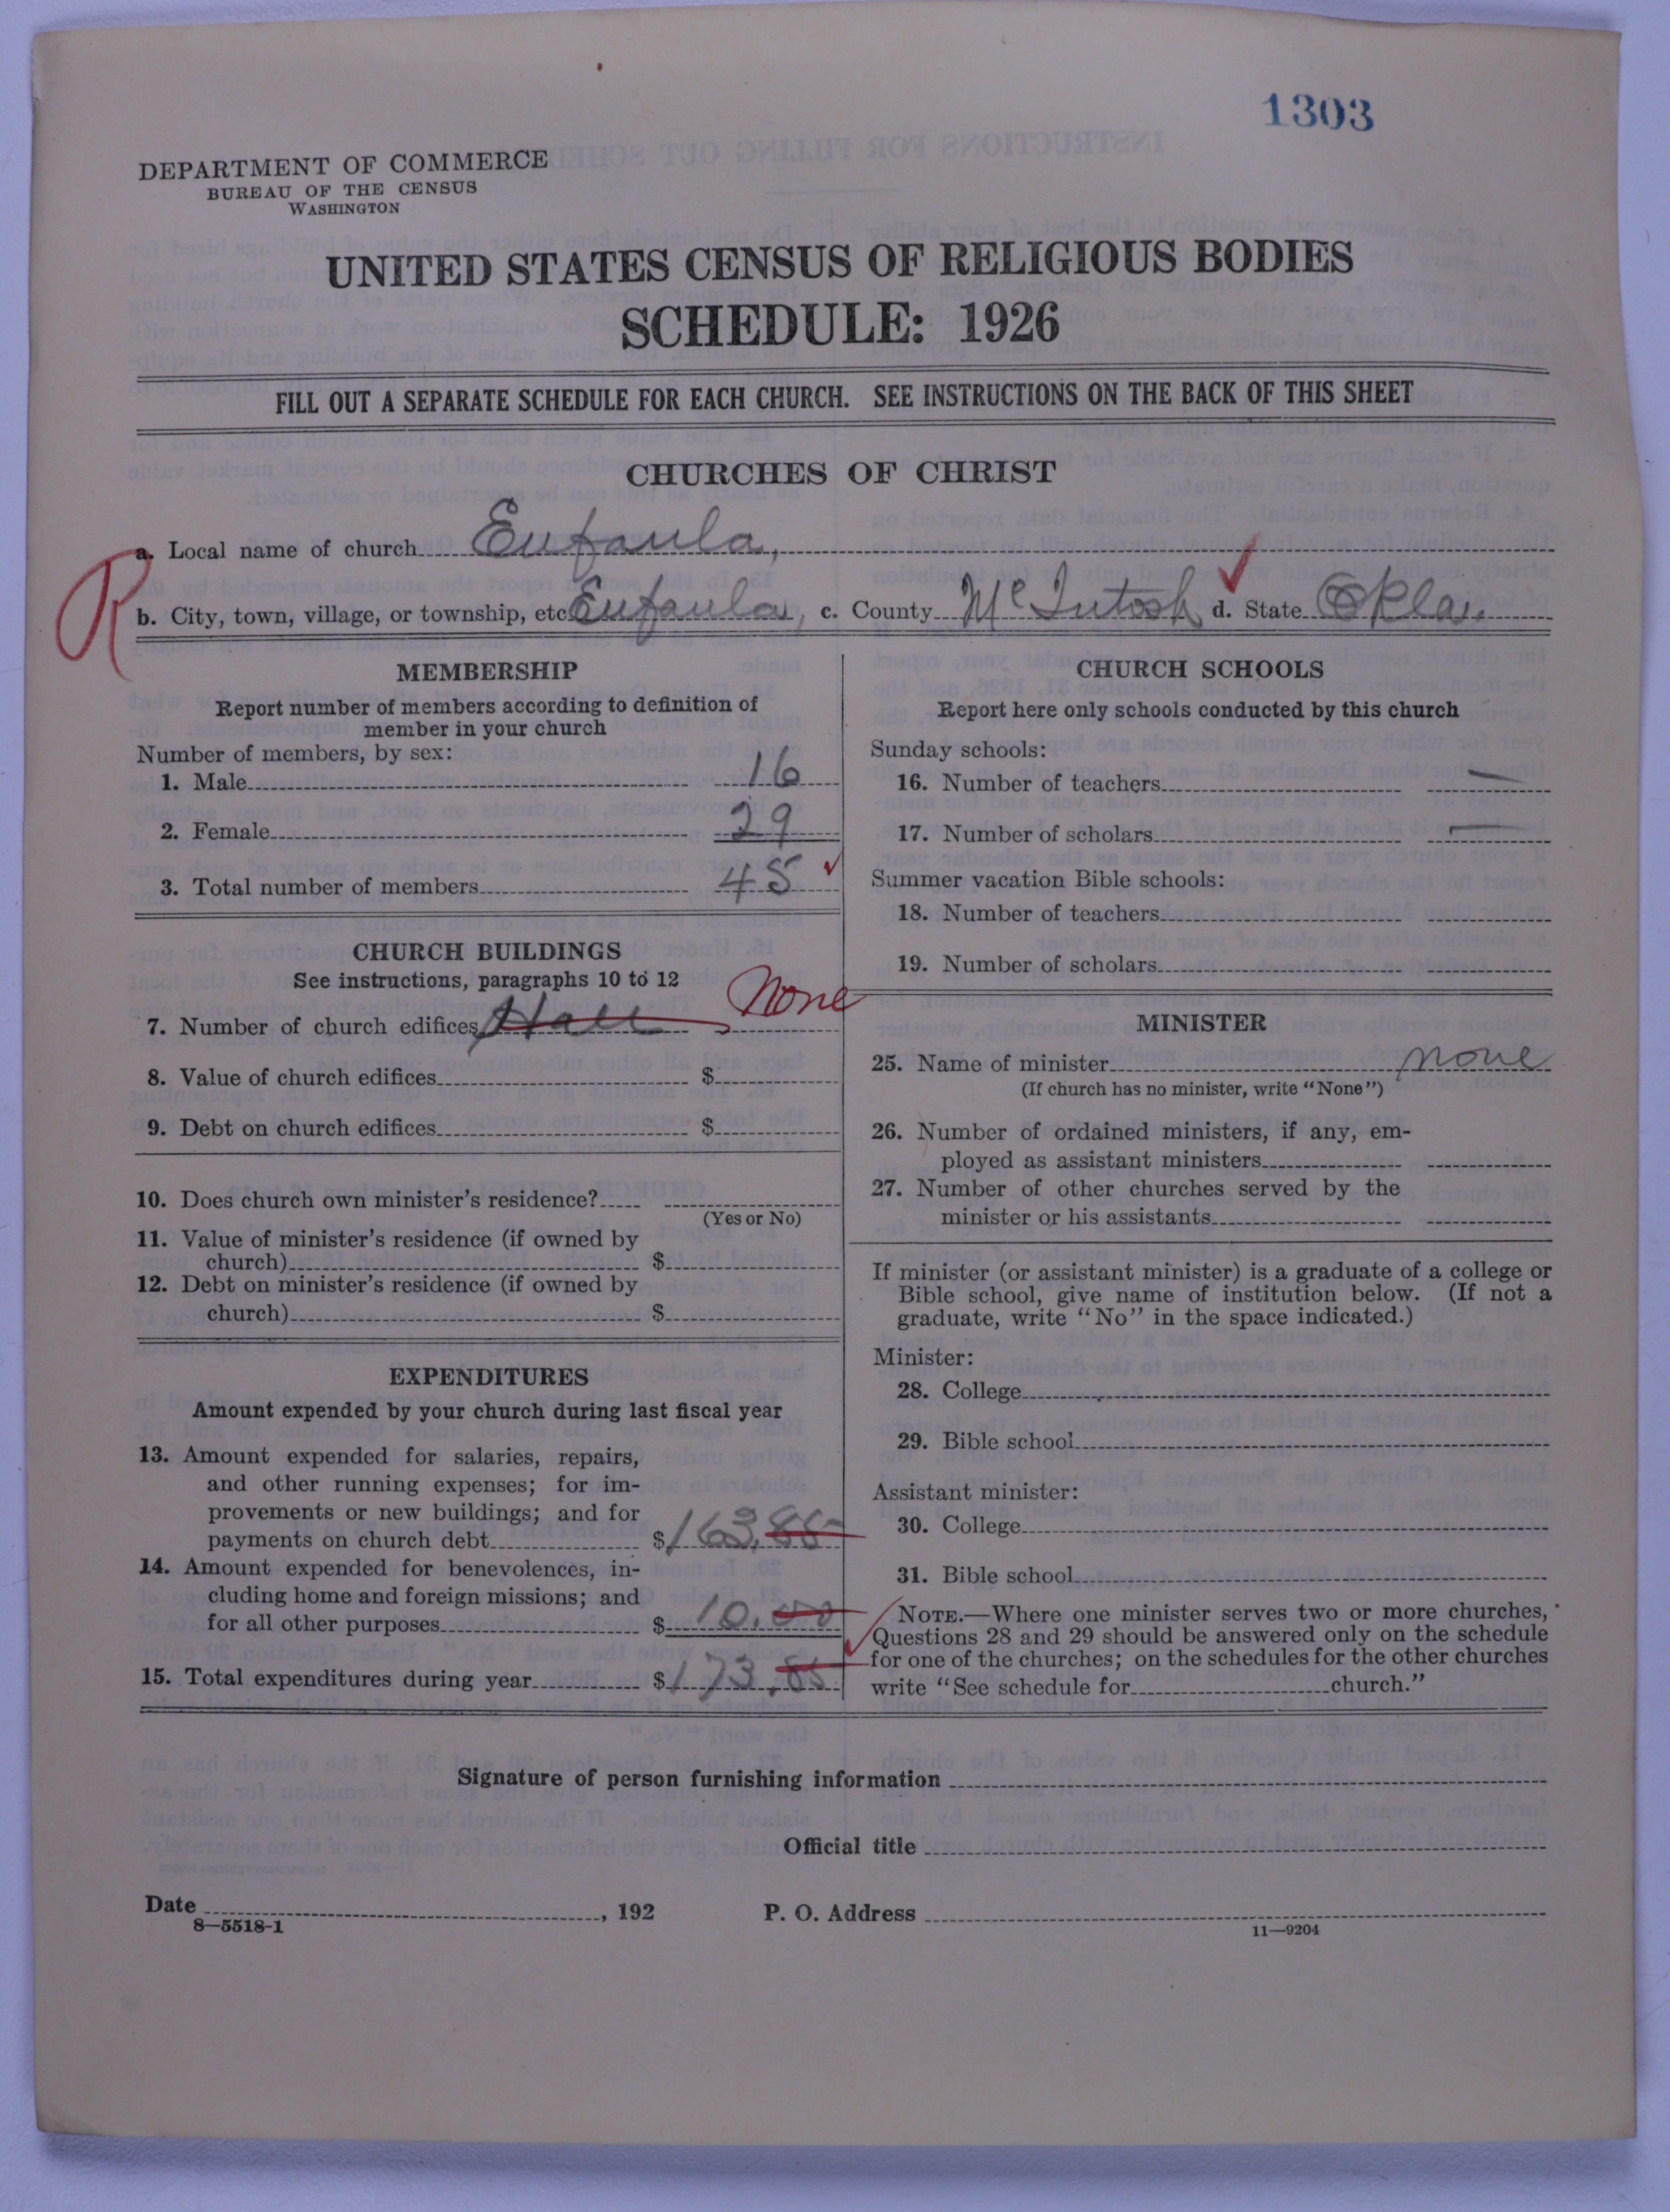 1303
DEPARTMENT OF COMMERCE
BUREAU OF THE CENSUS
WASHINGTON
UNITED STATES CENSUS OF RELIGIOUS BODIES
SCHEDULE: 1926
FILL OUT A SEPARATE SCHEDULE FOR EACH CHURCH. SEE INSTRUCTIONS ON THE BACK OF THIS SHEET
CHURCHES OF CHRIST
a. Local name of church Eufaula,
R
b. City, town, village, or township, etc. Eufaula, c. County McIntosh d. State Okla.
MEMBERSHIP
Report number of members according to definition of
member in your church
Number of members, by sex:
1. Male 16
2. Female 29
3. Total number of members 45
CHURCH BUILDINGS
See instructions, paragraphs 10 to 12
7. Number of church edifices Hall None
8. Value of church edifices $
9. Debt on church edifices $
10. Does church own minister's residence?
(Yes or No)
11. Value of minister's residence (if owned by
church) $
12. Debt on minister's residence (if owned by
church) $
EXPENDITURES
Amount expended by your church during last fiscal year
13. Amount expended for salaries, repairs,
and other running expenses; for im-
provements or new buildings; and for
payments on church debt $163.85
14. Amount expended for benevolences, in-
cluding home and foreign missions; and
for all other purposes $10.00
15. Total expenditures during year $173.85
CHURCH SCHOOLS
Report here only schools conducted by this church
Sunday schools:
16. Number of teachers —
17. Number of scholars —
Summer vacation Bible schools:
18. Number of teachers
19. Number of scholars
MINISTER
25. Name of minister none
(If church has no minister, write "None")
26. Number of ordained ministers, if any, em-
ployed as assistant ministers
27. Number of other churches served by the
minister or his assistants
If minister (or assistant minister) is a graduate of a college or
Bible school, give name of institution below. (If not a
graduate, write "No" in the space indicated.)
Minister:
28. College
29. Bible school
Assistant minister:
30. College
31. Bible school
NOTE.—Where one minister serves two or more churches,
Questions 28 and 29 should be answered only on the schedule
for one of the churches; on the schedules for the other churches
write "See schedule for church."
Signature of person furnishing information
Official title
Date , 192
P. O. Address
8—5518-1
11—9204